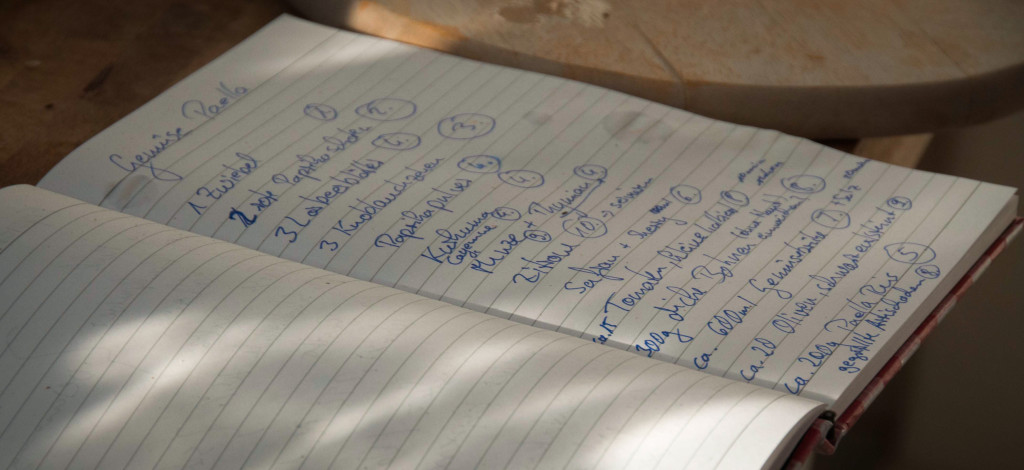 Gemüse Paella
1 Zwiebel ①
2 rote Paprikaschoten ②
3 Lorbeerblätter ④
3 Knoblauchzehen ③
Paprikapulver ④
Kurkuma ④
Cayenne ④
Minze ④ + Thymian ④
Zitrone ⑩
Safran + ④
Tomaten ①
300g dicke Bohnen ⑧
ca. 600ml Gemüsebrühe ⑦ Salz
ca. 20 Oliven, schwarz entsteint ⑨
ca. 200g Paella Reis ⑤
gegrillte Artischocken ⑧